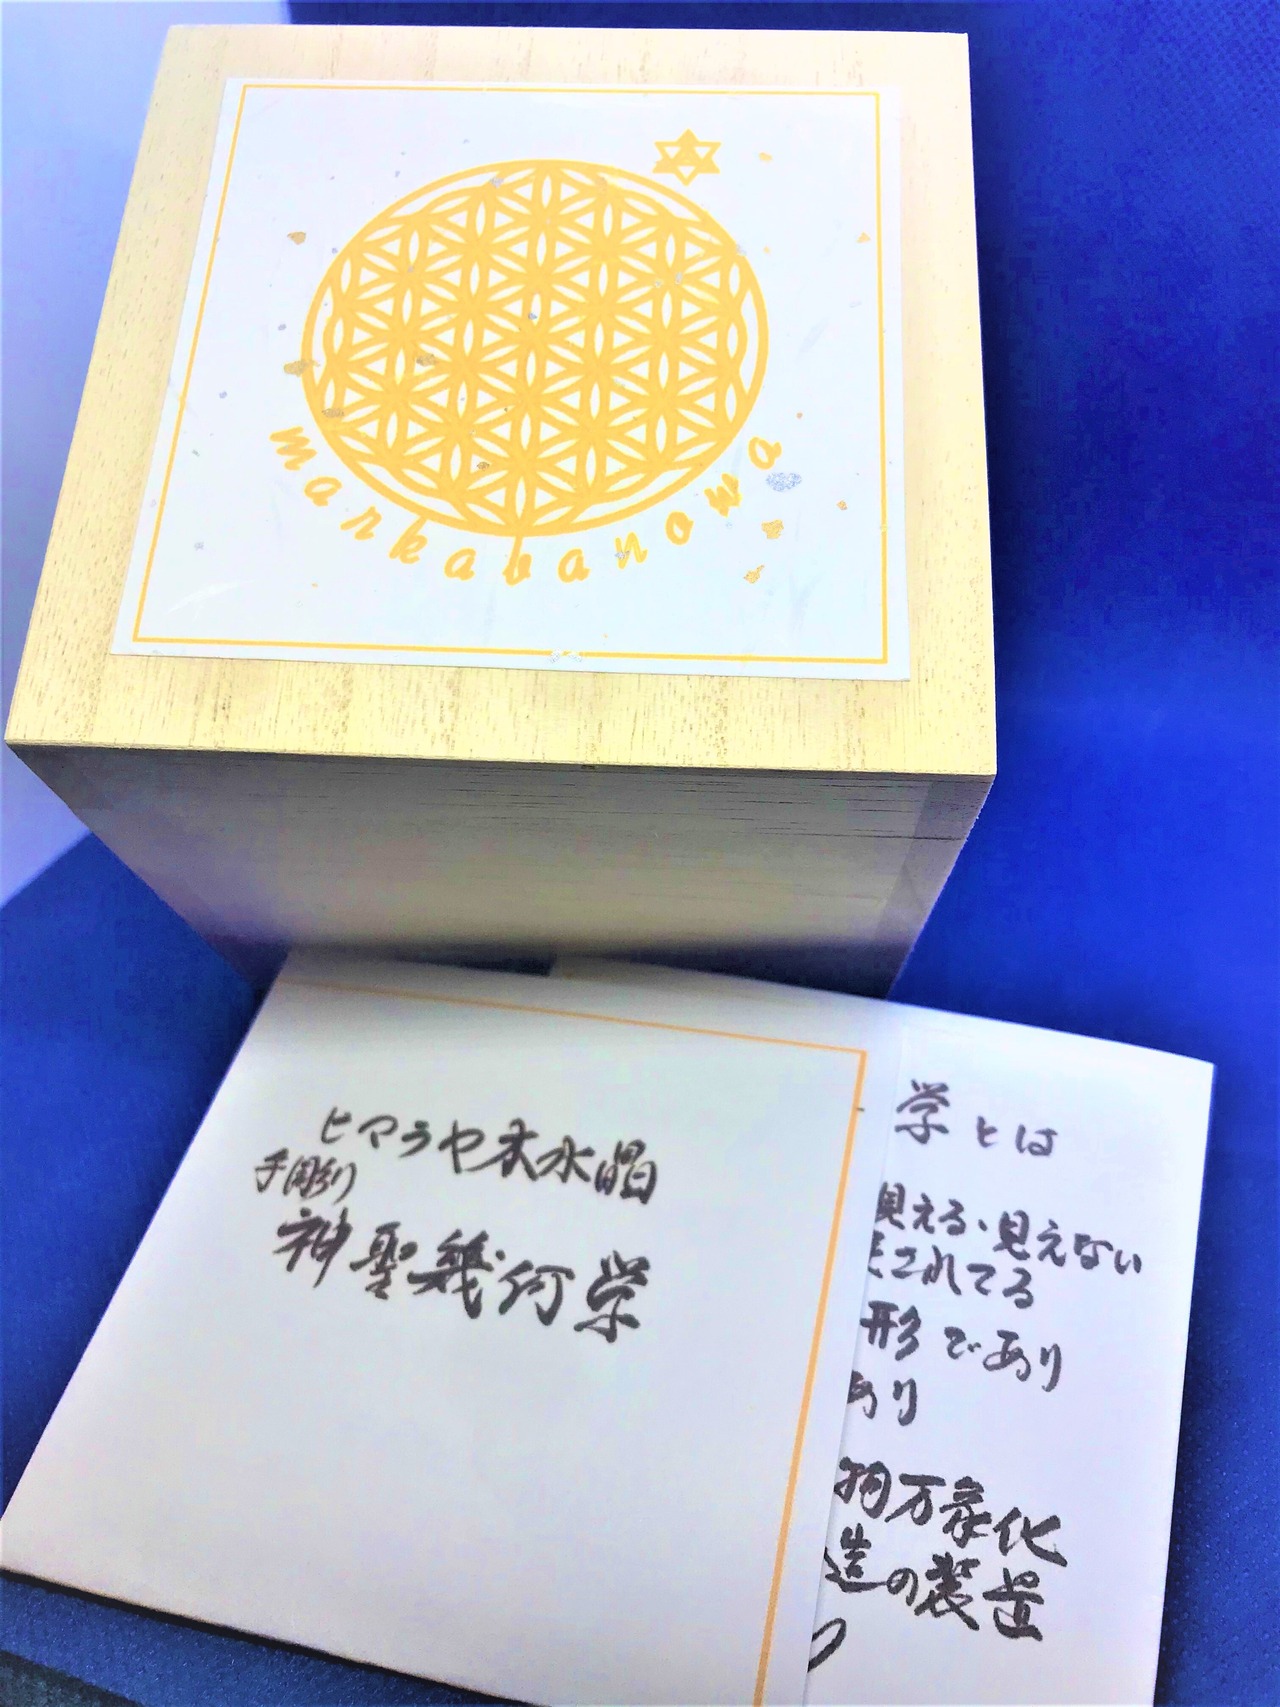 markabanowa
ヒマラヤ水晶
手彫り
神聖幾何学
学とは
見える、見えない
されてる
形であり
あり
物万象化
造の装置